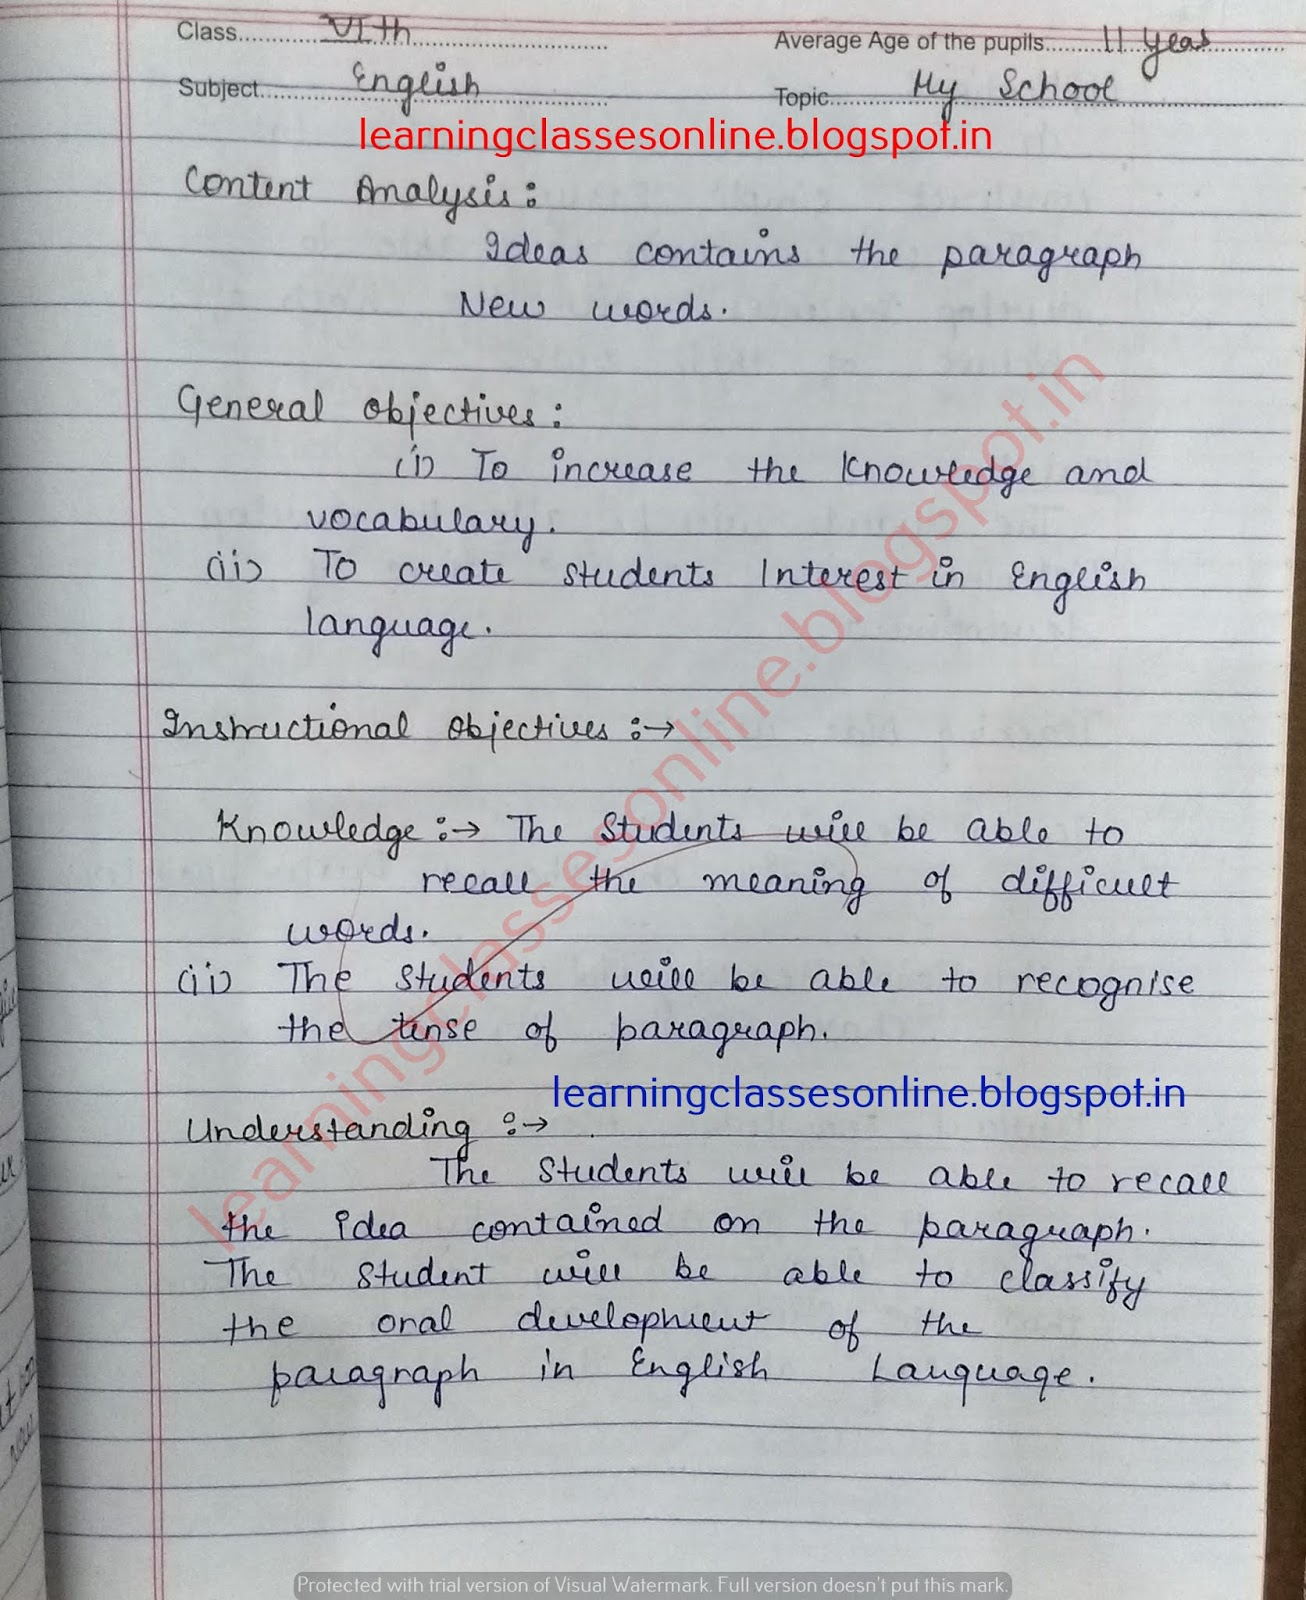 Class..........VIth..........
Average Age of the pupils.........11 Year..........
Subject..........English..........
Topic..........My School..........
learningclassesonline.blogspot.in
Content Analysis:
Ideas contains the paragraph
New words.
General objectives:
(i) To increase the Knowledge and
vocabulary.
(ii) To create students Interest in English
language.
Instructional objectives :→
Knowledge :→ The Students will be able to
recall the meaning of difficult
words.
(ii) The students will be able to recognise
the tense of paragraph.
learningclassesonline.blogspot.in
Understanding :→
The Students will be able to recall
the idea contained on the paragraph.
The student will be able to classify
the oral development of the
paragraph in English Language.
learningclassesonline.blogspot.in
Protected with trial version of Visual Watermark. Full version doesn't put this mark.